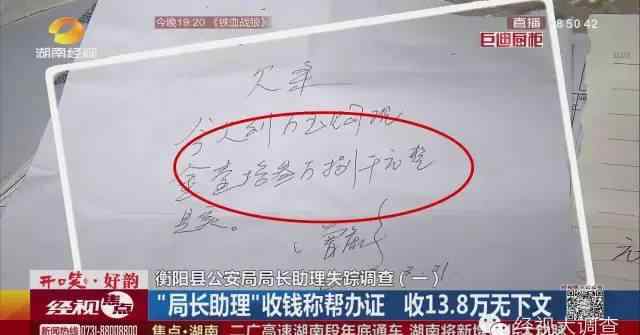 今晚19:20《铁血战狼》
直播
8:50:42
湖南经视
巨迪厨柜
欠条
今欠到
现
金壹拾叁万捌千元整
是实。
元
开口笑·好韵
衡阳县公安局局长助理失踪调查（一）
经视焦点
"局长助理"收钱称帮办证 收13.8万无下文
新闻热线 0731-88008800
焦点·湖南
二广高速湖南段年底通车 湖南将新增
经视大调查